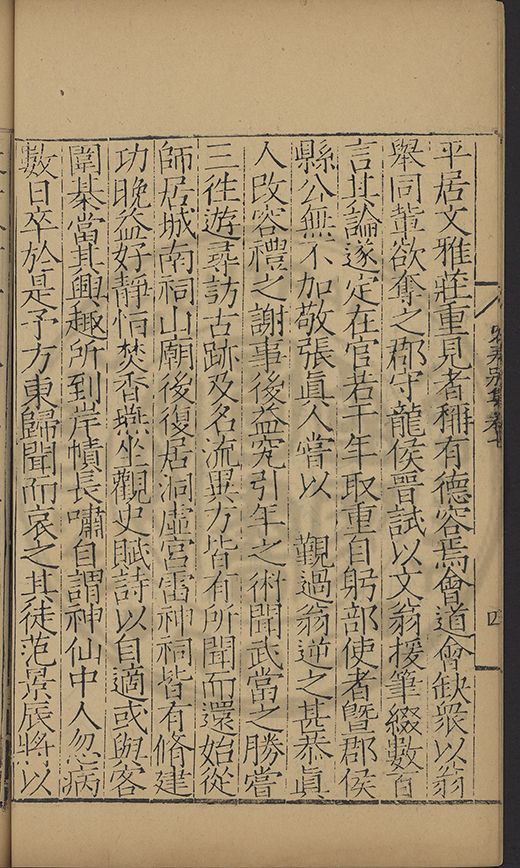 平居文雅莊重見者稱有德容焉會道會缺衆以翁
舉同輩欲奪之郡守龍侯晉試以文翁援筆綴數百
言其論遂定在官若干年取重自躬部使者曁郡侯
縣公無不加敬張眞人嘗以 覲過翁逆之甚恭眞
人改容禮之謝事後益究引年之術聞武當之勝嘗
三徃遊尋訪古跡及名流異方皆有所聞而還始從
師居城南祠山廟後復居洞虛宮雷神祠皆有脩建
功晚益好靜恬焚香燕坐觀史賦詩以自適或與客
圍棊當其興趣所到岸幘長嘯自謂神仙中人忽病
數日卒於是予方東歸聞而哀之其徒范景辰將以
四